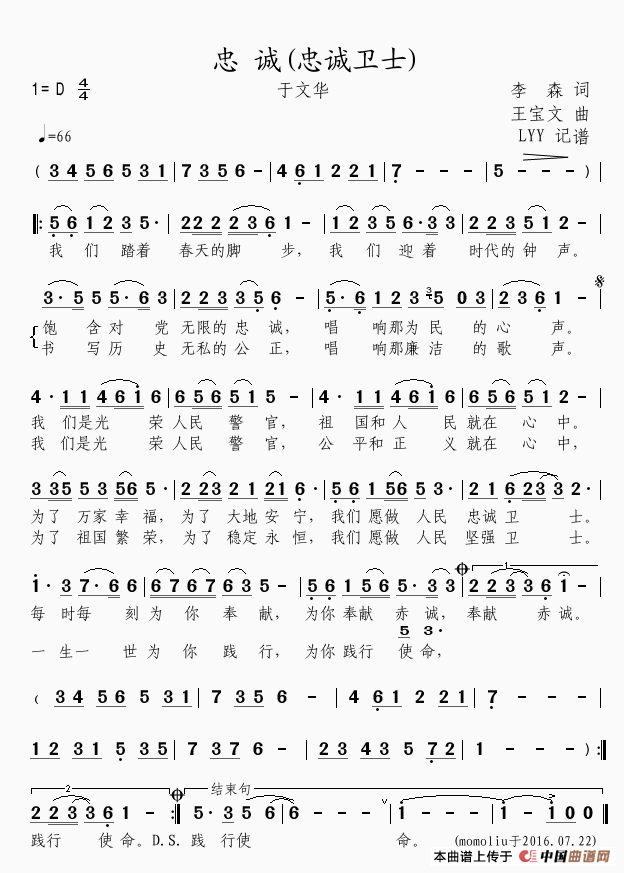 忠 诚(忠诚卫士)
1= D 4/4 于文华 李 森 词
王宝文 曲
♩=66 LYY 记谱
( 3 4 5 6 5 3 1 | 7 3 5 6 - | 4 6 1 2 2 1 | 7 - - - | 5 - - - ) |
5 6 1 2 3 5· | 2 2 2 2 3 6 1 - | 1 2 3 5 6· 3 3 | 2 2 3 5 1 2 - |
我 们 踏着 春天的脚 步, 我 们 迎 着 时代的 钟 声。
3· 5 5 5· 6 3 | 2 2 3 3 5 6 - | 5· 6 1 2 3 3 5 0 3 | 2 3 6 1 - |
饱 含 对 党 无限的 忠 诚, 唱 响那为 民 的 心 声。
书 写 历 史 无私的 公 正, 唱 响那廉 洁 的 歌 声。
4· 1 1 4 6 1 6 | 6 5 6 5 1 5 - | 4· 1 1 4 6 1 6 | 6 5 6 5 1 2 - |
我 们是光 荣 人民 警 官, 祖 国和 人 民 就在 心 中。
我 们是光 荣 人民 警 官, 公 平和 正 义 就在 心 中,
3 3 5 5 3 5 6 5· | 2 2 3 2 1 2 1 6 - | 5 6 1 5 6 5 3 | 2 1 6 2 3 3 2· |
为了 万家 幸 福, 为了 大地 安 宁, 我们 愿做 人民 忠诚 卫 士。
为了 祖国 繁 荣, 为了 稳定 永 恒, 我们 愿做 人民 坚强 卫 士。
1
1· 3 7· 6 6 | 6 7 6 7 6 3 - | 5 6 1 5 6 5· 3 3 | 2 2 3 3 6 1 - |
每 时每 刻 为 你 奉 献, 为你 奉献 赤 诚, 奉献 赤 诚。
5 3·
一 生一 世 为 你 践 行, 为你 践行 使 命,
( 3 4 5 6 5 3 1 | 7 3 5 6 - | 4 6 1 2 2 1 | 7 - - - |
1 2 3 1 5 3 5 | 7 3 7 6 - | 2 3 4 3 5 7 2 | 1 - - ) :|
2 结束句
2 2 3 3 6 1 - :| 5· 3 5 6 - - | 1 - - - | 1 - 1 0 0 ‖
践行 使 命。D.S. 践 行使 命。 (momoliu于2016.07.22)
本曲谱上传于 中国曲谱网